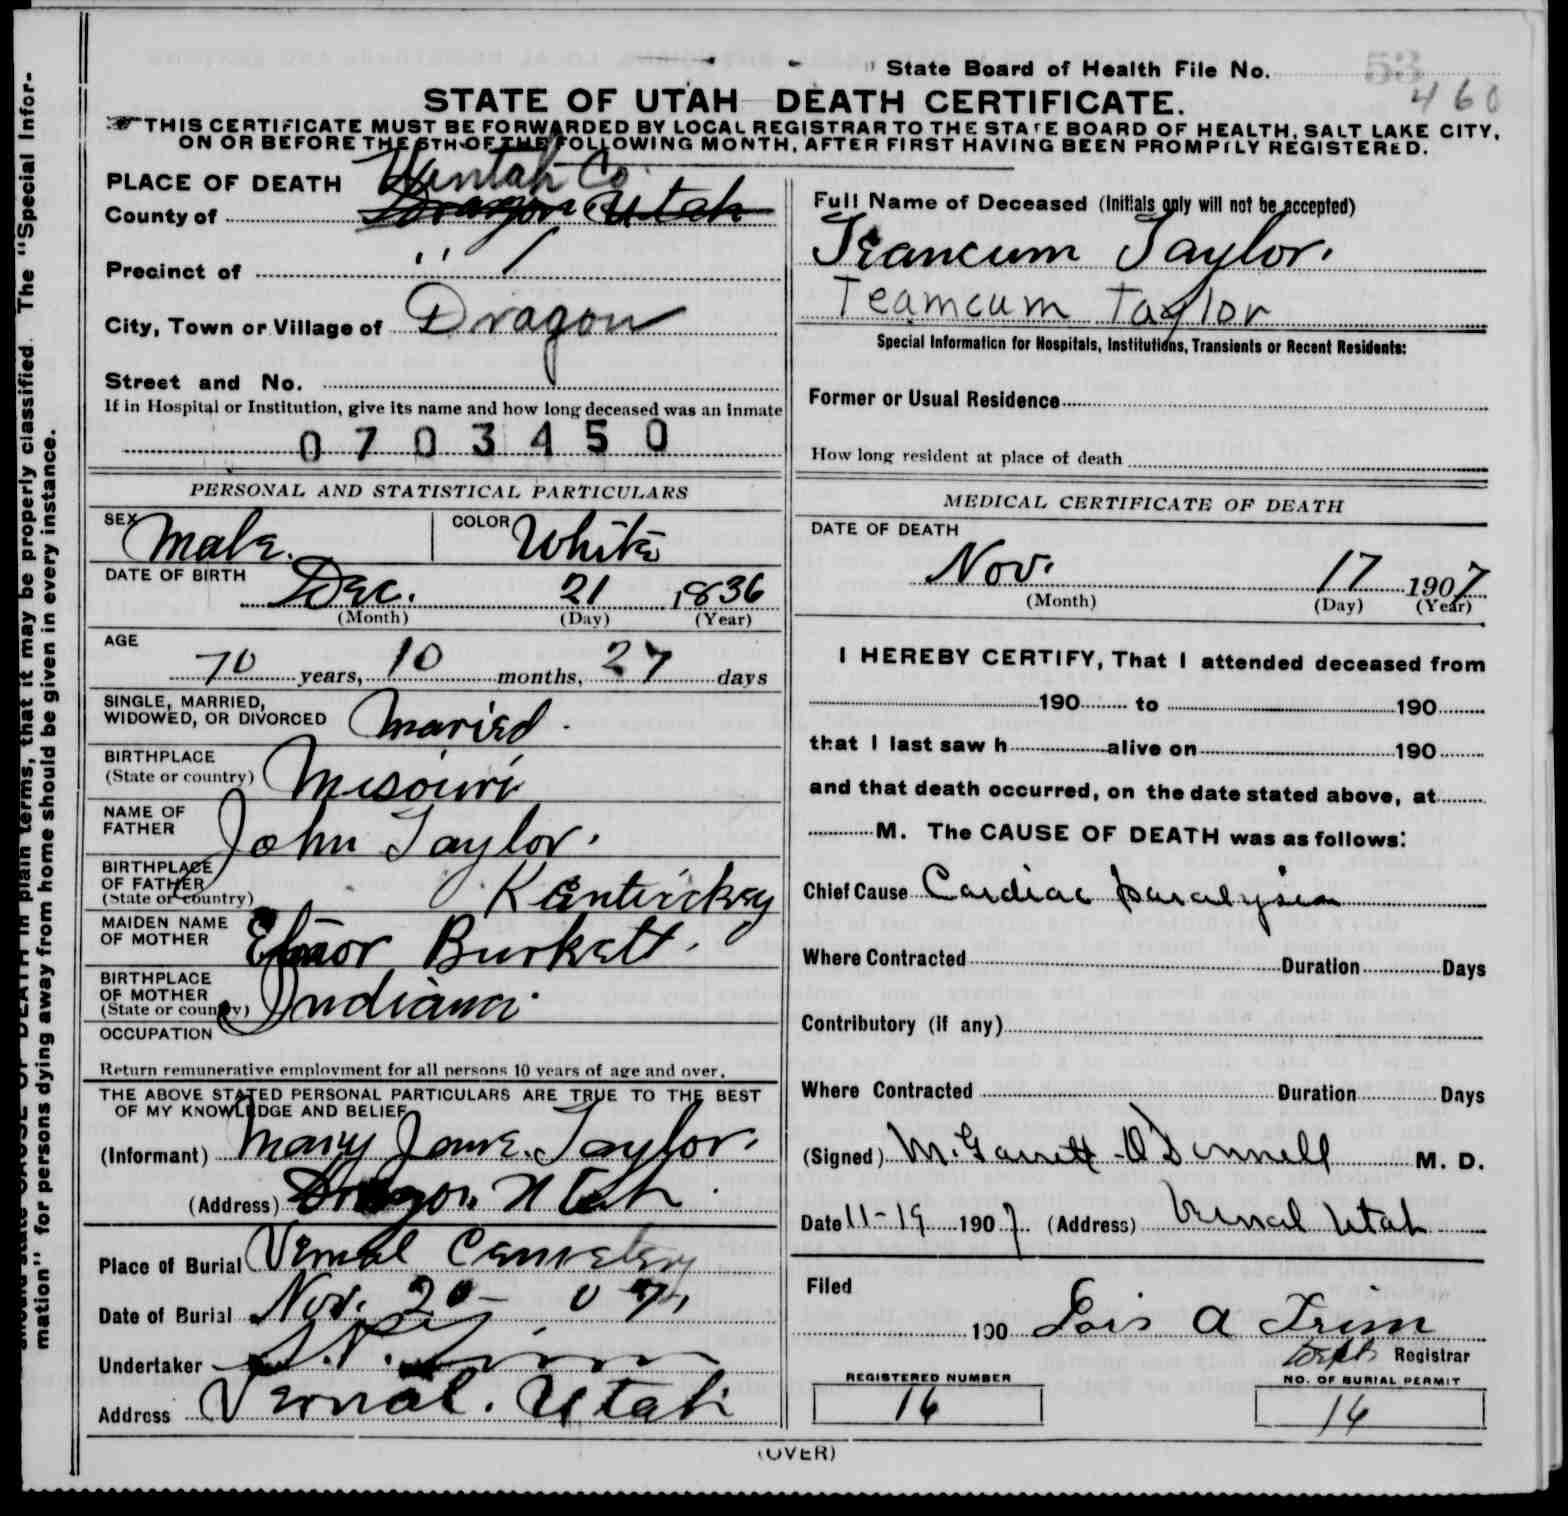 State Board of Health File No. 53
460
STATE OF UTAH DEATH CERTIFICATE.
THIS CERTIFICATE MUST BE FORWARDED BY LOCAL REGISTRAR TO THE STATE BOARD OF HEALTH, SALT LAKE CITY,
ON OR BEFORE THE 5TH OF THE FOLLOWING MONTH, AFTER FIRST HAVING BEEN PROMPTLY REGISTERED.
PLACE OF DEATH Uintah Co.
County of Dragon Utah
Precinct of " /
City, Town or Village of Dragon
Street and No.
If in Hospital or Institution, give its name and how long deceased was an inmate
0703450
PERSONAL AND STATISTICAL PARTICULARS
SEX Male. COLOR White
DATE OF BIRTH Dec. 21 1836
(Month) (Day) (Year)
AGE
70 years, 10 months, 27 days
SINGLE, MARRIED,
WIDOWED, OR DIVORCED Maried.
BIRTHPLACE
(State or country) Misouri
NAME OF
FATHER John Taylor.
BIRTHPLACE
OF FATHER
(State or country) Kentuckey
MAIDEN NAME
OF MOTHER Elnor Burkett.
BIRTHPLACE
OF MOTHER
(State or country) Indiana.
OCCUPATION
Return remunerative employment for all persons 10 years of age and over.
THE ABOVE STATED PERSONAL PARTICULARS ARE TRUE TO THE BEST
OF MY KNOWLEDGE AND BELIEF
(Informant) Mary Jane Taylor.
(Address) Dragon Utah.
Place of Burial Vernal Cemetery
Date of Burial Nov. 20 - 07,
Undertaker
Address Vernal. Utah
Full Name of Deceased (Initials only will not be accepted)
Teancum Taylor.
Teamcum Taylor
Special Information for Hospitals, Institutions, Transients or Recent Residents:
Former or Usual Residence
How long resident at place of death
MEDICAL CERTIFICATE OF DEATH
DATE OF DEATH
Nov. 17 1907
(Month) (Day) (Year)
I HEREBY CERTIFY, That I attended deceased from
190 to 190
that I last saw h alive on 190
and that death occurred, on the date stated above, at
M. The CAUSE OF DEATH was as follows:
Chief Cause Cardiac paralysis
Where Contracted Duration Days
Contributory (if any)
Where Contracted Duration Days
(Signed) M. Garrett O'Donnell M. D.
Date 11-19 1907. (Address) Vernal Utah
Filed
190 Lois A Trim
Dept Registrar
REGISTERED NUMBER
16
NO. OF BURIAL PERMIT
16
(OVER)
should state CAUSE OF DEATH in plain terms, that it may be properly classified. The "Special Infor-
mation" for persons dying away from home should be given in every instance.